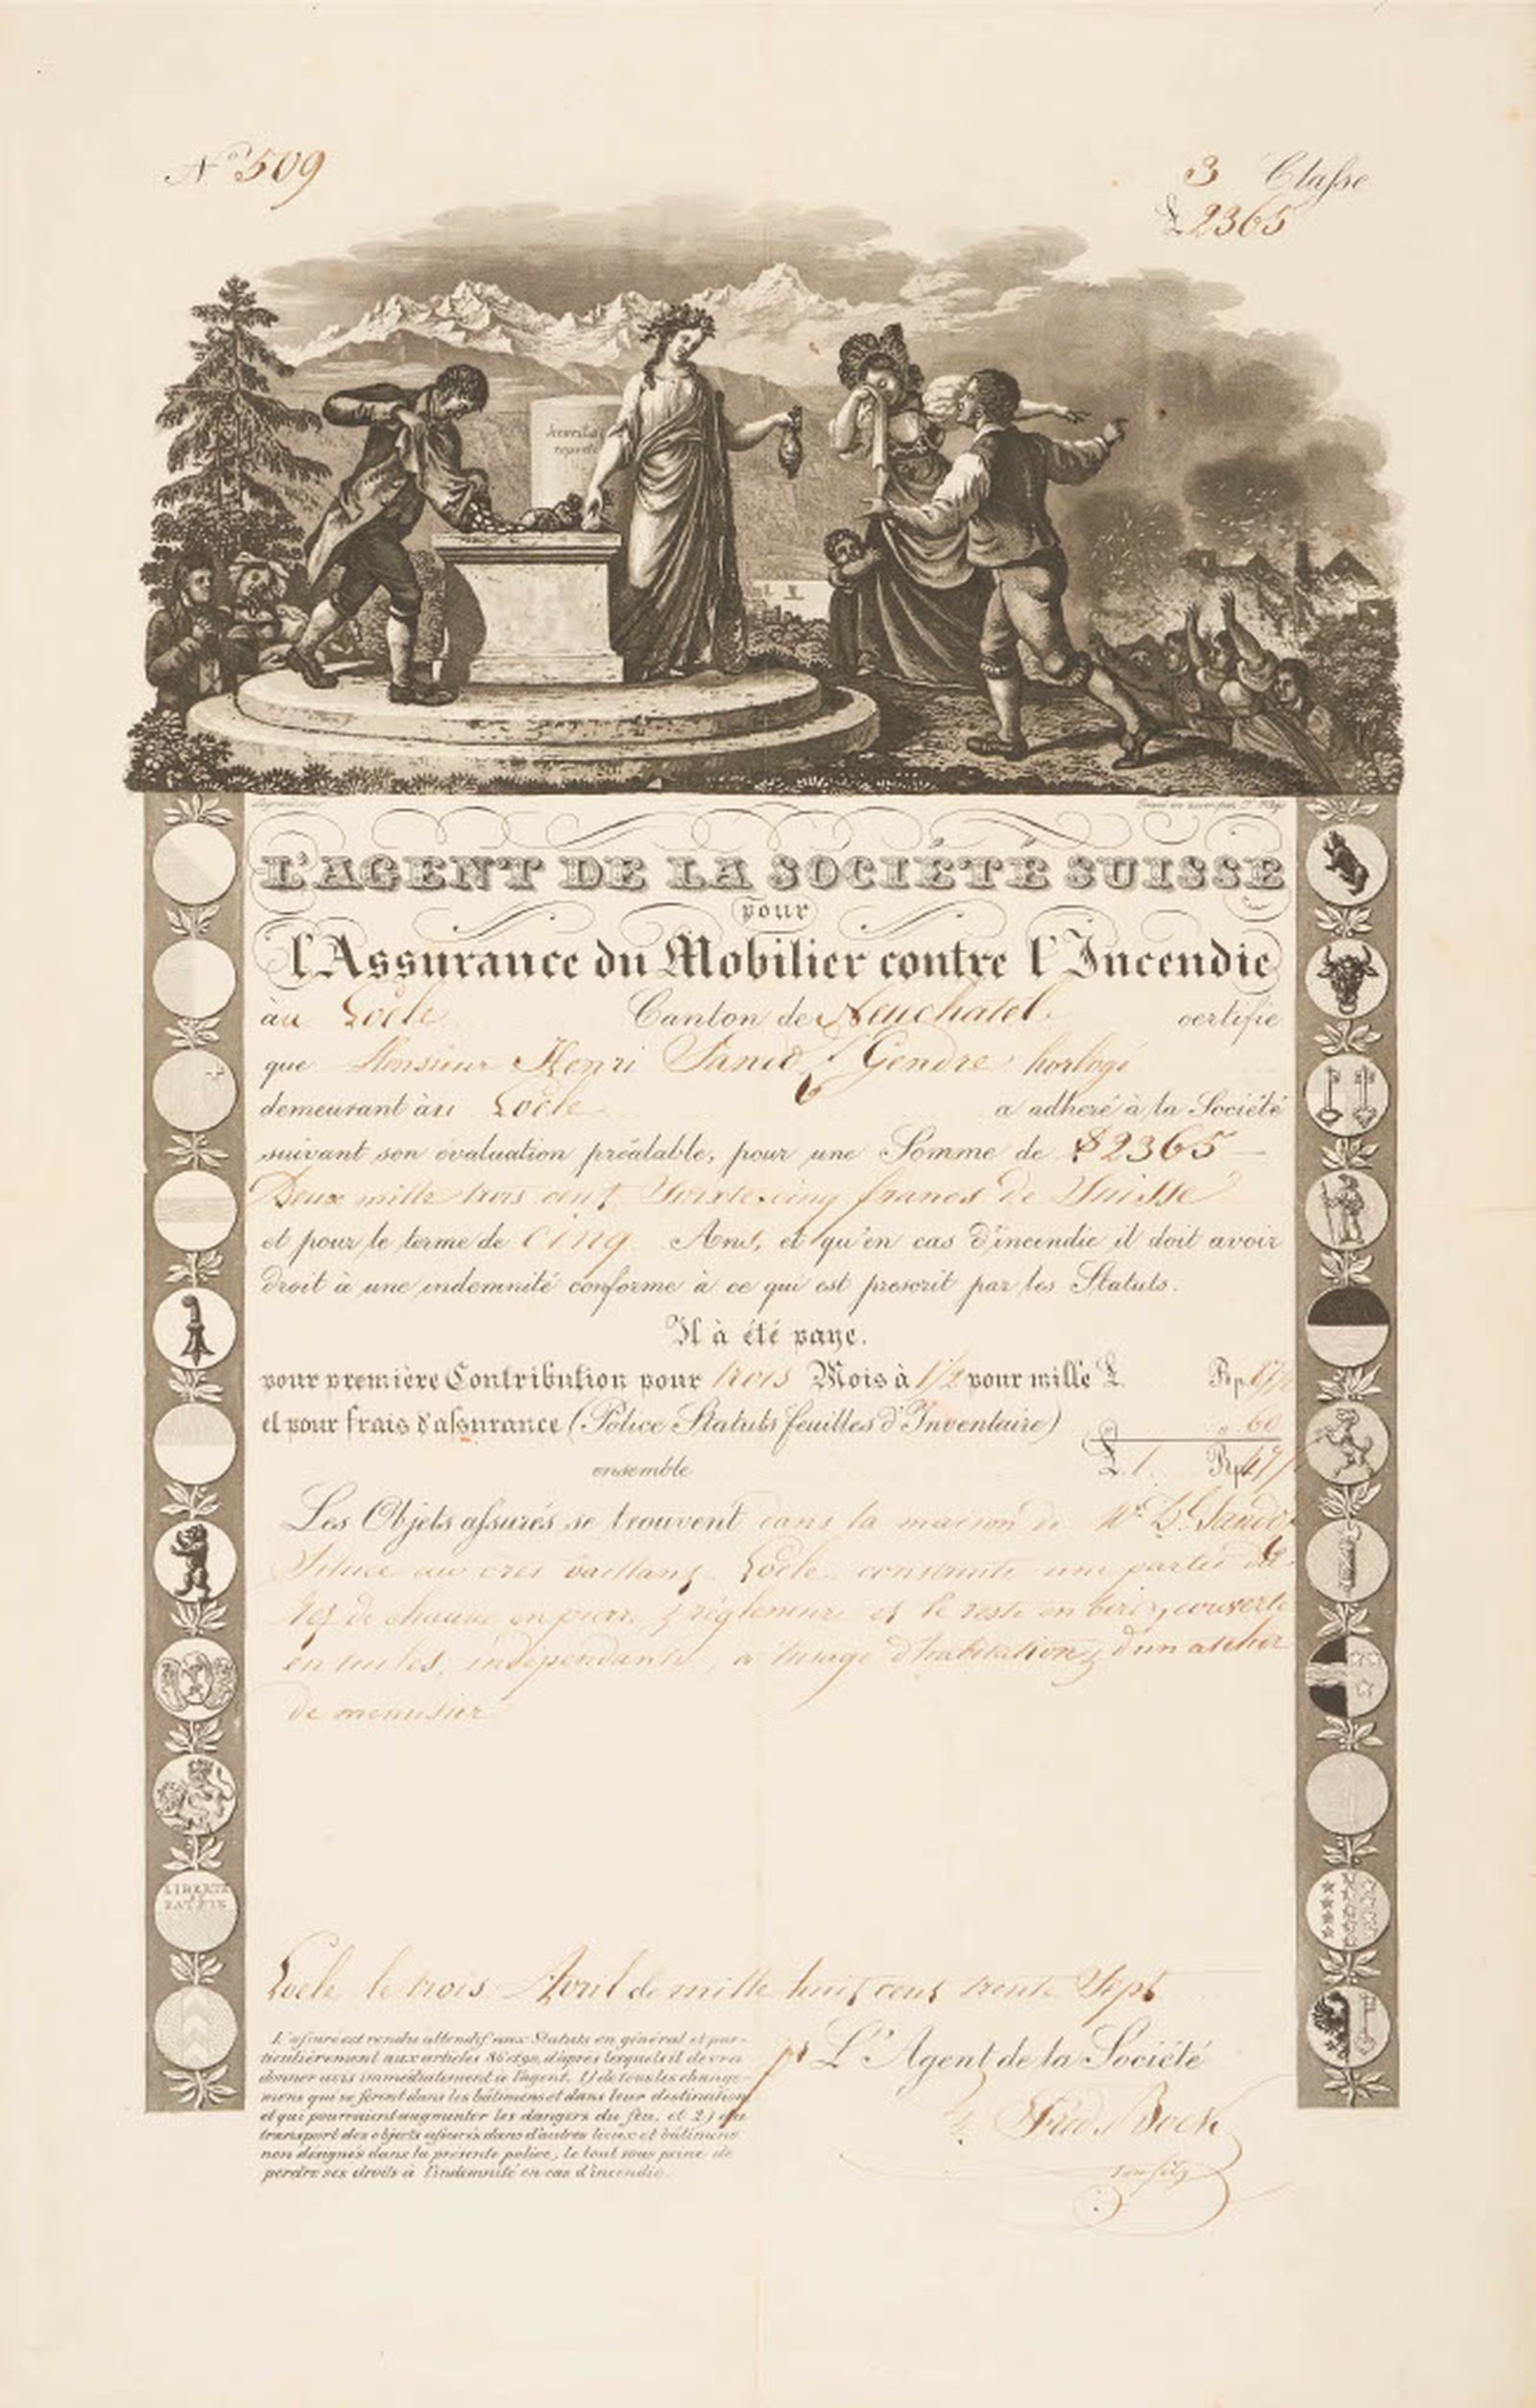 N° 509
3 Classe
£ 2365
L'AGENT DE LA SOCIÉTÉ SUISSE
pour
l'Assurance du Mobilier contre l'Incendie
àu Locle Canton de Neuchatel certifie
que Monsieur Henri Sandoz Gendre horloge
demeurant àu Locle a adheré à la Société
suivant son évaluation préalable, pour une Somme de £ 2365
Deux mille trois cent Soixte cinq francs de Suisse
et pour le terme de cinq Ans, et qu'en cas d'incendie il doit avoir
droit à une indemnité conforme à ce qui est prescrit par les Statuts.
Il à été paye.
pour première Contribution pour trois Mois à 1/2 pour mille £. Rp. 87/2
et pour frais d'assurance (Police Statuts feuilles d'Inventaire) " 60
ensemble £. 1. Rp. 47/2
Les Objets assurés se trouvent dans la maison de Mr. Sandoz
Située au cret vaillant Locle construite une partie du
rez de chaussé en pierre et le reste en bois, couverte
en tuiles, indépendante, a l'usage d'habitation, d'un atelier
de menuisier
LIBERTÉ
ET
PATRIE
Locle le trois Avril de mille huit cent trente Sept
L'assuré est rendu attentif aux Statuts en général et par-
ticulièrement aux articles 86 et 90, d'après lesquels il devra
donner avis immédiatement à l'agent. 1) de tous les change-
mens qui se feront dans les bâtimens et dans leur destination
et qui pourraient augmenter les dangers du feu. et 2) du
transport des objets assurés dans d'autres lieux et bâtimens
non désignés dans la présente police, le tout sous peine de
perdre ses droits à l'indemnité en cas d'incendie.
pr L'Agent de la Société
Fred. Bock